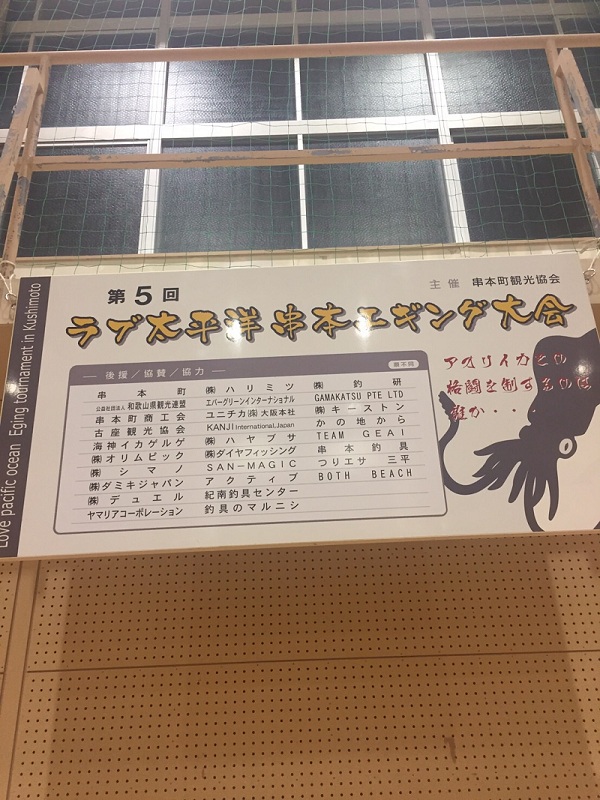 Love pacific ocean Eging tournament in Kushimoto
主催 串本町観光協会
第5回
ラブ太平洋 串本エギング大会
後援/協賛/協力
順不同
串本町
公益社団法人 和歌山県観光連盟
串本町商工会
古座観光協会
海神イカゲルゲ
㈱オリムピック
㈱シマノ
㈱ダミキジャパン
㈱デュエル
ヤマリアコーポレーション
㈱ハリミツ
エバーグリーンインターナショナル
ユニチカ㈱大阪本社
KANJI International.Japan
㈱ハヤブサ
㈱ダイヤフィッシング
SAN-MAGIC
アクティブ
紀南釣具センター
釣具のマルニシ
㈱釣研
GAMAKATSU PTE LTD
㈱キーストン
かの地から
TEAM GEAI
串本釣具
つりエサ 三平
BOTH BEACH
アオリイカとの
格闘を制するのは
誰か・・